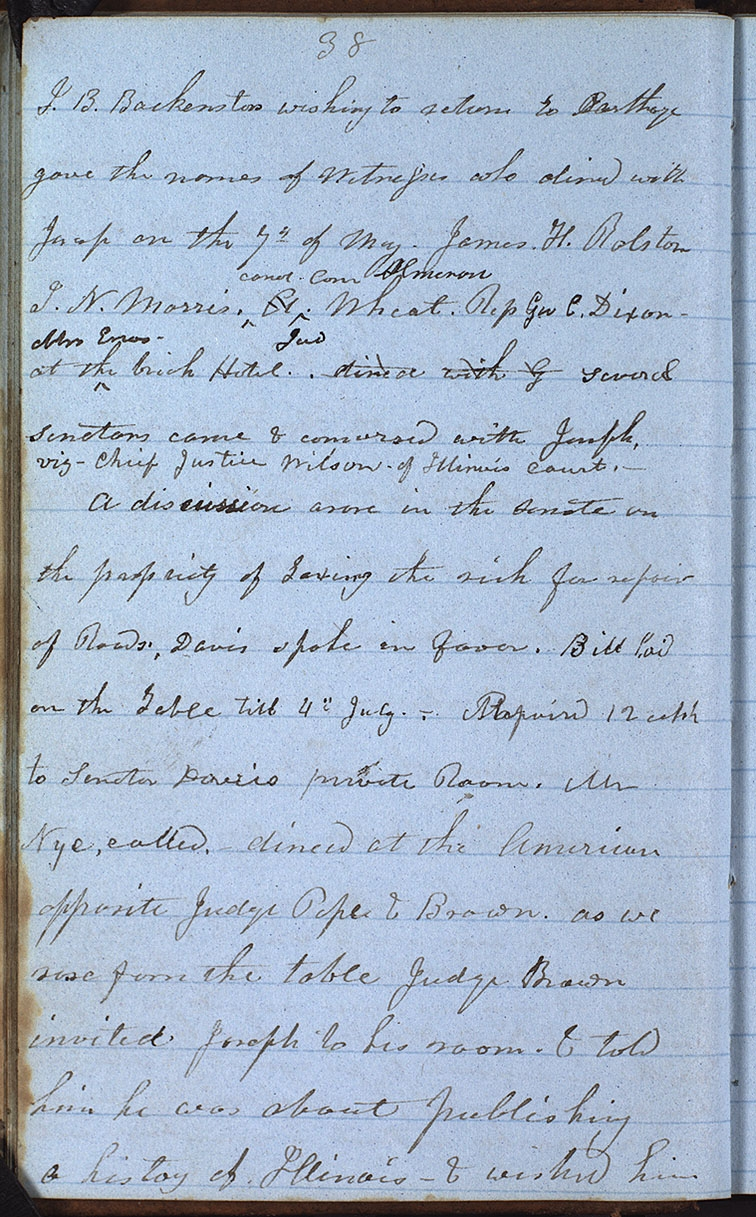 38
J. B. Backenstos wishing to return to Carthage
gave the names of witnesses who dined with
Joseph on the 7th of May. James. H. Rolston
canal. Com Almeron
I. N. Morris. Wheat. Rep Gu C. Dixon-
Mrs Enos- Jud
at the brick Hotel. . dined with G several
senetors came & conversed with Joseph,
viz- Chief Justice Wilson- of Illinois court.-
A discussion arose in the senate on
the propriety of Taxing the rich for repair
of Roads, Davis spoke in favor. Bill laid
on the Table till 4th July. - Repaired 12 oclk
to Senator Davis private Room. Mr
Nye, called, - dined at the American
opposite Judge Pope & Brown. as we
rose from the table Judge Brown
invited Joseph to his room. & told
him he was about publishing
a history of Illinois - & wished him